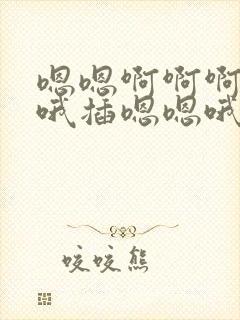 嗯嗯啊啊啊
哦插嗯嗯哦
咬咬熊